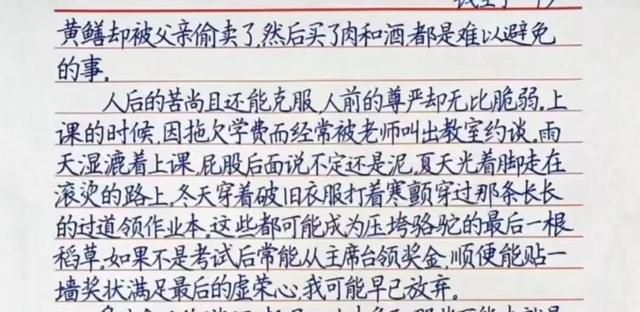 黄鳝却被父亲偷卖了,然后买了肉和酒,都是难以避免
的事.
人后的苦尚且还能克服,人前的尊严却无比脆弱.上
课的时候,因拖欠学费而经常被老师叫出教室约谈.雨
天湿漉着上课,屁股后面说不定还是泥.夏天光着脚走在
滚烫的路上.冬天穿着破旧衣服打着寒颤穿过那条长长
的过道领作业本.这些都可能成为压垮骆驼的最后一根
稻草.如果不是考试后常能从主席台领奖金,顺便能贴一
墙奖状满足最后的虚荣心,我可能早已放弃.